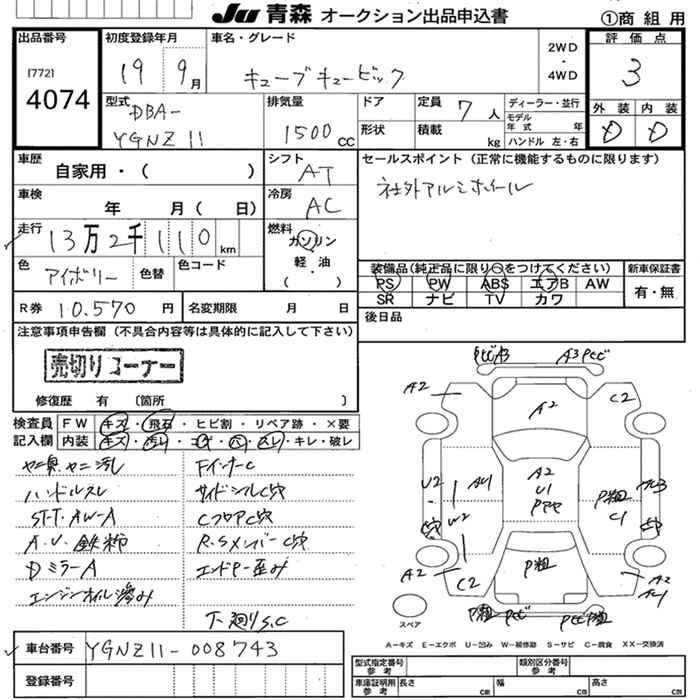 JU 青森 オークション出品申込書
①商 組 用
出品番号
[772]
4074
初度登録年月
19 9月
車名・グレード
キューブキュービック
2WD
・
4WD
評価点
3
外装 内装
D D
型式
DBA-
YGNZ11
排気量
1500cc
ドア
形状
定員 7人
積載 kg
ディーラー・並行
モデル年式 年
ハンドル 左・右
車歴
自家用・( )
シフト
AT
セールスポイント(正常に機能するものに限ります)
社外アルミホイール
車検
年 月( 日)
冷房
AC
走行
13万2千110km
燃料
ガソリン
軽・油
( )
色
アイボリー
色替
色コード
装備品(純正品に限り○をつけてください)
PS PW ABS エアB AW
SR ナビ TV カワ
新車保証書
有・無
R券 10.570円
名変期限 月 日
後日品
注意事項申告欄(不具合内容等は具体的に記入して下さい)
売切りコーナー
修復歴 有 〔箇所 〕
検査員記入欄
FW キズ・飛石・ヒビ割・リペア跡・×要
内装 キズ・汚レ・コゲ・穴・スレ・キレ・破レ
ヤニ臭、ヤニ汚レ
ハンドルスレ
ST-T.AW-A
A.U.鉄粉
DミラーA
エンジンオイル滲み
FインナーC
サイドシルC穴
CフロアC穴
R.SメンバーC穴
エンドP-歪み
下廻りS.C
PとびA3
A3Pとび
A2
A2
C2
U2
A4
A2
U1
Pアヤ
P粗
C1
W2
A2
C2
P粗
A2
P粗
Pとび
PとびP粗
スペア
A-キズ E-エクボ U-凹み W-補修跡 S-サビ C-腐食 XX-交換済
車台番号
YGNZ11-008743
登録番号
型式指定番号
参考
類別区分番号
参考
車庫証明用
参考
長さ cm
幅 cm
高さ cm